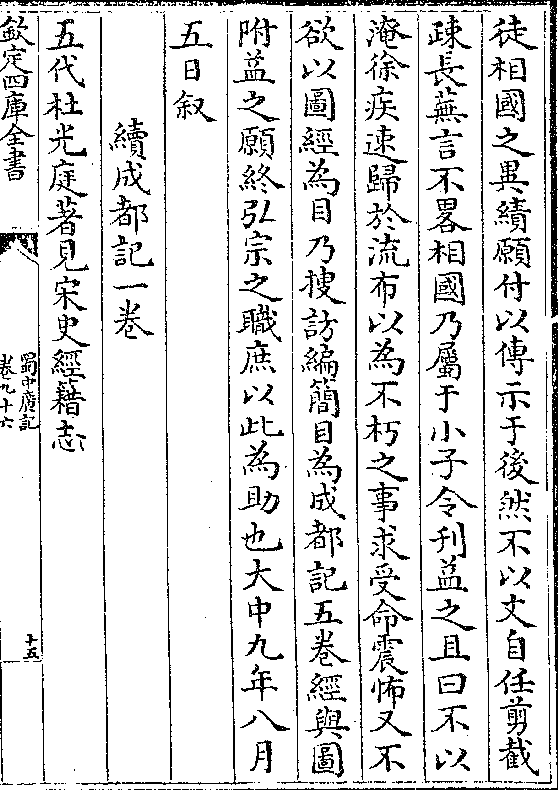 徒相國之異績願付以傳示于後然不以文自任剪截
疎長蕪言不畧相國乃屬于小子令刋益之且曰不以
淹徐疾速歸於流布以為不朽之事求受命震怖又不
欲以圖經為目乃捜訪編簡目為成都記五卷經與圖
附益之願終弘宗之職庶以此為助也大中九年八月
五日叙
續成都記一卷
五代杜光庭著見宋史經籍志
欽定四庫全書
蜀中廣記
卷九十六
十五